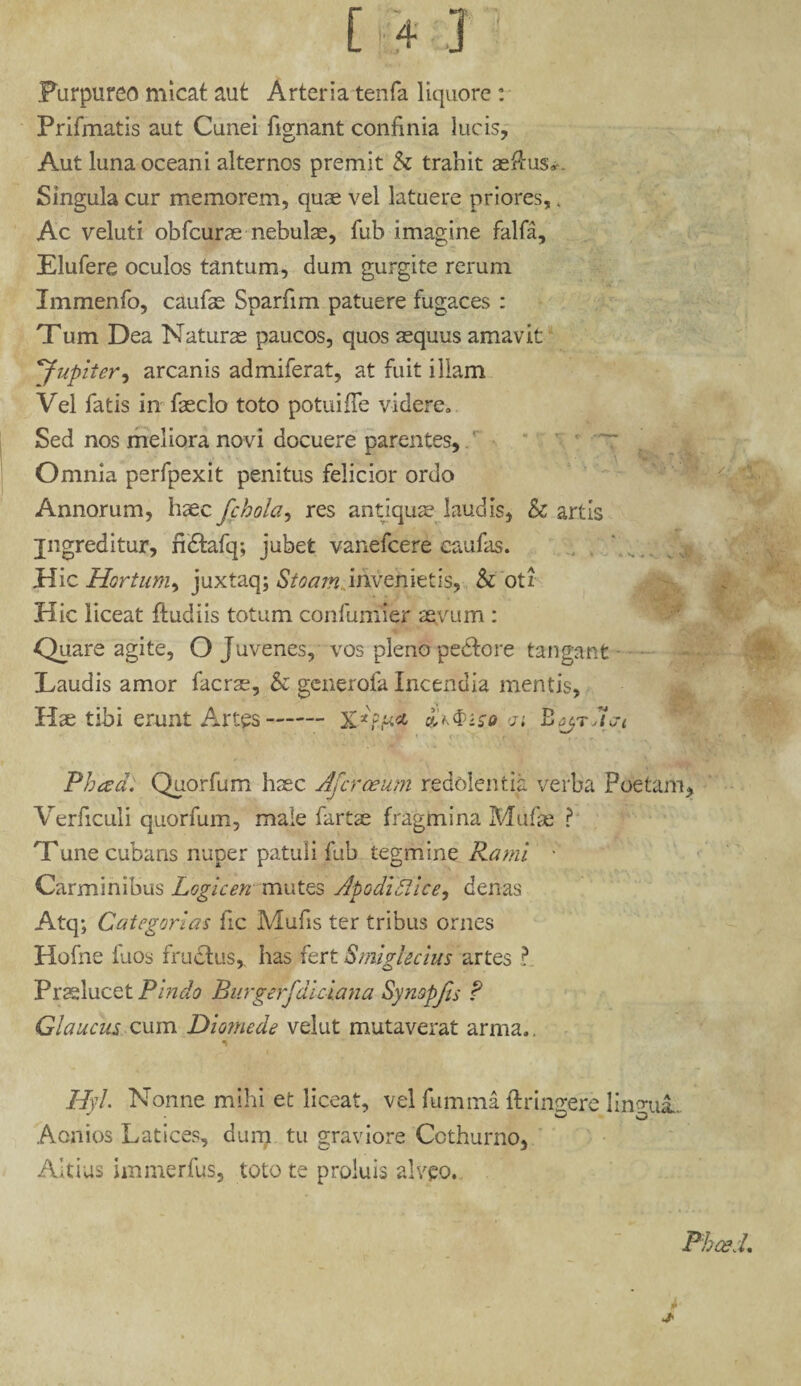 [ 4 ]
Purpureo micat aut Arteria tenſa liquore :
Priſmatis aut Cunei ſignant confinia lucis,
Aut luna oceani alternos premit & trahit æſtus.
Singula cur memorem, quæ vel latuere priores,
Ac veluti obſcuræ nebulæ, ſub imagine falſâ,
Eluſere oculos tantum, dum gurgite rerum
Immenſo, cauſæ Sparſim patuere fugaces :
Tum Dea Naturæ paucos, quos æquus amavit
Jupiter, arcanis admiſerat, at fuit illam
Vel fatis in ſæclo toto potuiſſe videre.
Sed nos meliora novi docuere parentes,
Omnia perſpexit penitus felicior ordo
Annorum, hæc ſchola, res antiquæ laudis, & artis
Ingreditur, fictaſq; jubet vaneſcere cauſas.
Hic Hortum, juxtaq; Stoam invenietis, & otî
Hic liceat ſtudiis totum conſumier ævum :
Quare agite, O Juvenes, vos pleno pectore tangant
Laudis amor ſacræ, & generoſa Incendia mentis,
Hæ tibi erunt Artes ———
Phæd. Quorſum hæc Aſcræum redolentia verba Poetam,
Verſiculi quorſum, male fartæ fragmina Muſæ ?
Tune cubans nuper patuli ſub tegmine Rami
Carminibus Logicen mutes Apodictice, denas
Atq; Categorias ſic Muſis ter tribus ornes
Hoſne ſuos fructus, has fert Smiglecius artes ?
Prælucet Pindo Burgerſdiciana Synopſis ?
Glaucus cum Diomede velut mutaverat arma.
Hyl. Nonne mihi et liceat, vel ſummâ ſtringere linguâ
Aonios Latices, dum tu graviore Cothurno,
Altius immerſus, toto te proluis alveo.
Phœd.